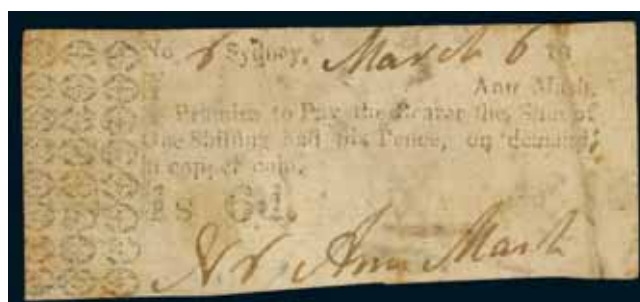 No 8 Sydney, March 6 18
Ann Mash,
Promise to Pay the Bearer the Sum of
One Shilling and six Pence, on demand,
in copper coin.
S
Ann Mash